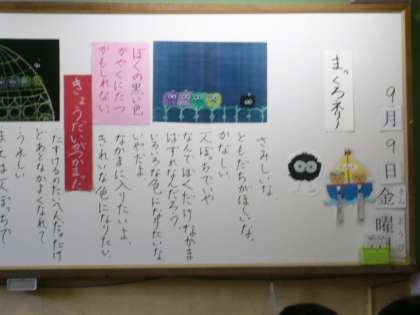 9月9日金曜日
きん
ようび
まっくろネリノ
さみしいな。
ともだちがほしいな。
かなしい。
一人ぼっちでいや
なんでぼくだけなかま
はずれなんだろう。
いろいろな色になりたいな
いやだよ
なかまに入りたいよ。
きれいな色になりたい。
ぼくの黒い色
がやくにたつ
かもしれない。
きょうだいがつかまった
たすけるのたいへんだったけど
あとなかよくなれて
うれしい